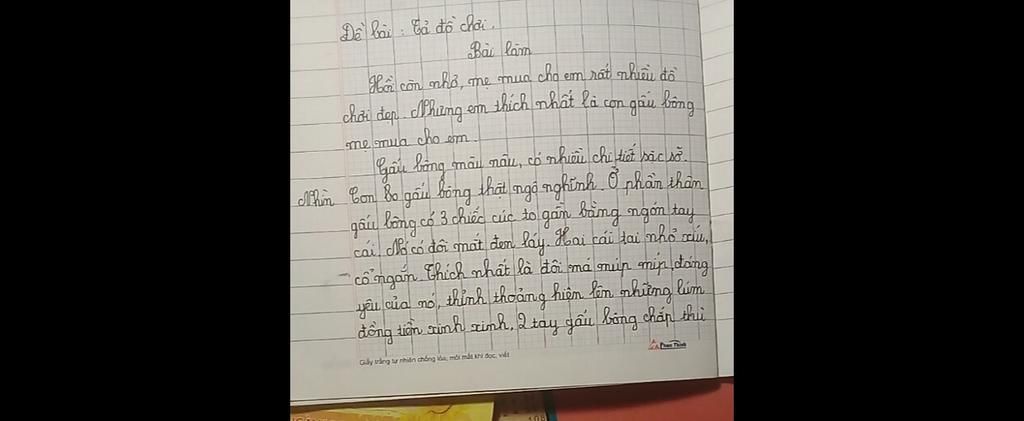 Đề bài : Tả đồ chơi.
Bài làm
Hồi còn nhỏ, mẹ mua cho em rất nhiều đồ
chơi đẹp. Nhưng em thích nhất là con gấu bông
mẹ mua cho em.
Gấu bông màu nâu, có nhiều chi tiết sặc sỡ.
Nhìn con gấu bông thật ngộ nghĩnh. Ở phần thân
gấu bông có 3 chiếc cúc to gần bằng ngón tay
cái. Nó có đôi mắt đen láy. Hai cái tai nhỏ xíu,
cổ ngắn. Thích nhất là đôi má múp míp, đáng
yêu của nó, thỉnh thoảng hiện lên những lúm
đồng tiền xinh xinh. 2 tay gấu bông chắp thu
Giấy trắng tự nhiên chống lóa, mỏi mắt khi đọc, viết